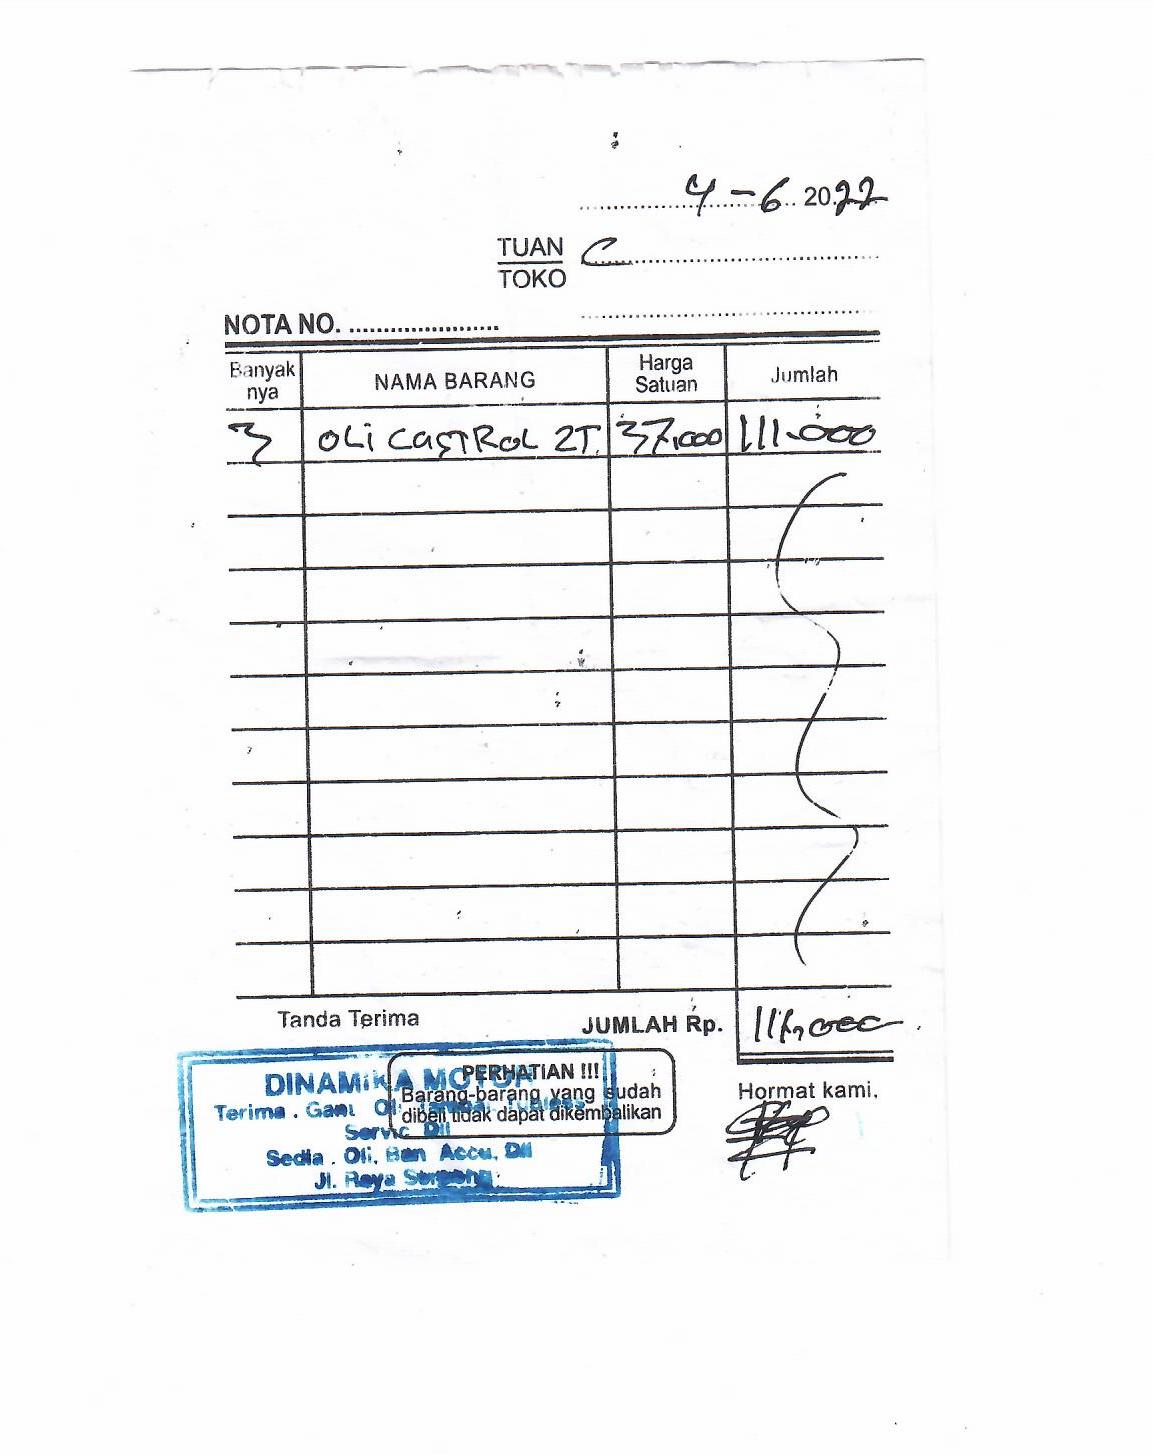 4 - 6 2022
TUAN
TOKO
NOTA NO.
Banyak nya NAMA BARANG Harga Satuan Jumlah
3 OLI CASTROL 2T. 37.000 111.000
Tanda Terima JUMLAH Rp. 111.000
DINAMIKA MOTOR
Terima . Ganti Oli, Tambal Tubless
Servic Dll
Sedia . Oli, Ban Accu, Dll
Jl. Raya Serpong
PERHATIAN !!!
Barang-barang yang sudah
dibeli tidak dapat dikembalikan
Hormat kami,